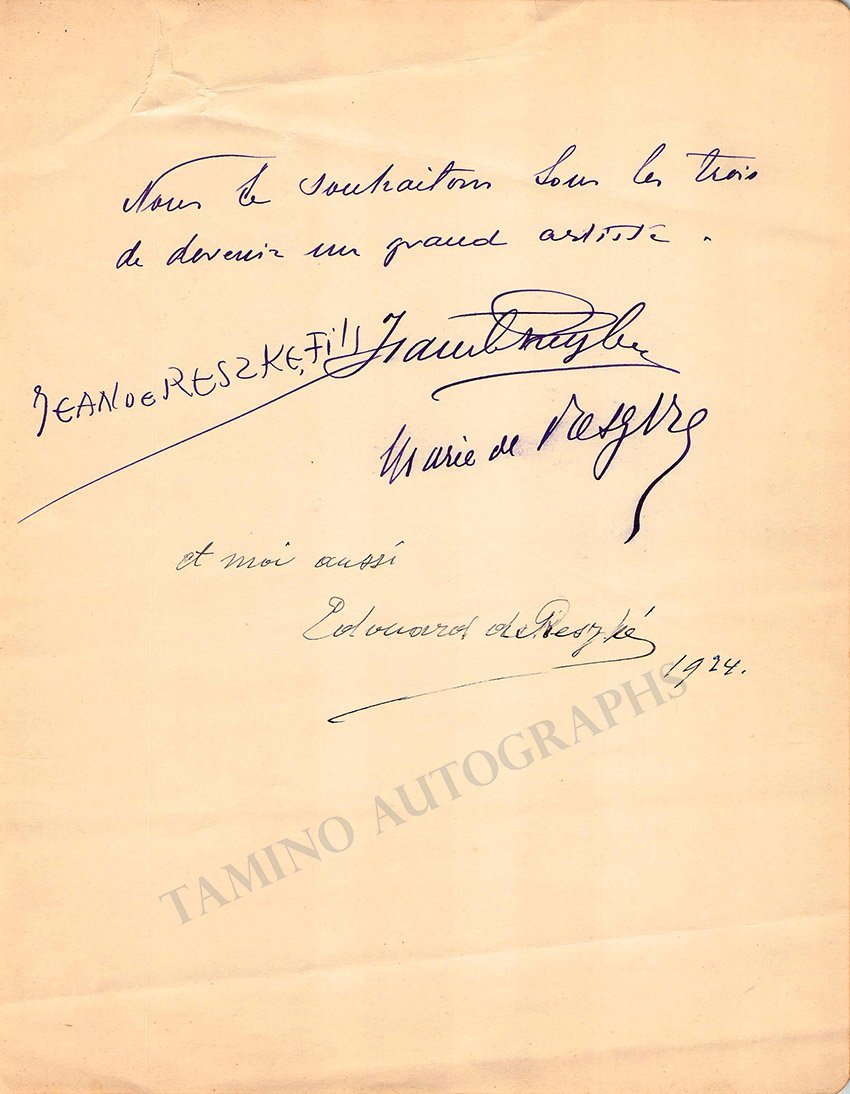 Nous te souhaitons tous les trois
de devenir un grand artiste.
JEAN DE RESZKE, Fils
Marie de Reszke
et moi aussi
Edouard de Reszké
1924.
TAMINO AUTOGRAPHS